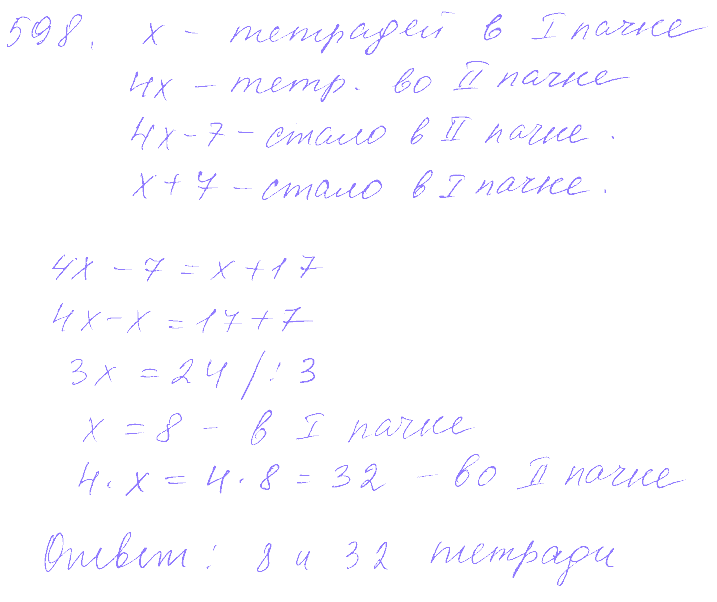 598. x - тетрадей в I пачке
4x - тетр. во II пачке
4x - 7 - стало в II пачке.
x + 7 - стало в I пачке.
4x - 7 = x + 17
4x - x = 17 + 7
3x = 24 /: 3
x = 8 - в I пачке
4 · x = 4 · 8 = 32 - во II пачке
Ответ: 8 и 32 тетради